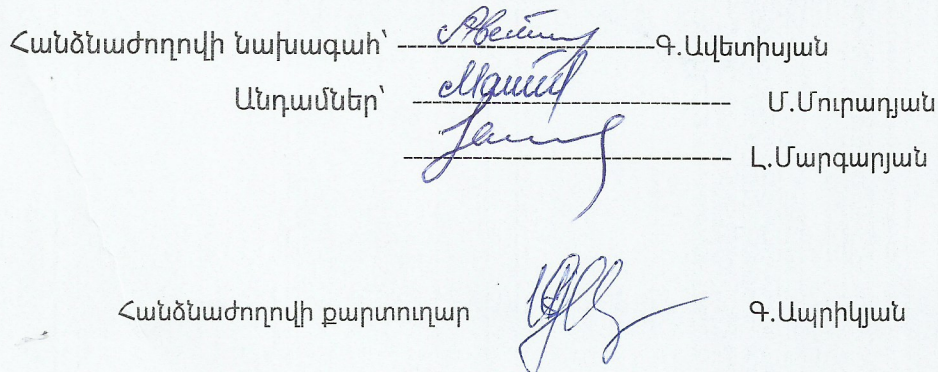 Հանձնաժողովի նախագահ՝ ---------------------------Գ.Ավետիսյան
Անդամներ՝ --------------------------------- Մ.Մուրադյան
---------------------------------- Լ.Մարգարյան
Հանձնաժողովի քարտուղար Գ.Ապրիկյան